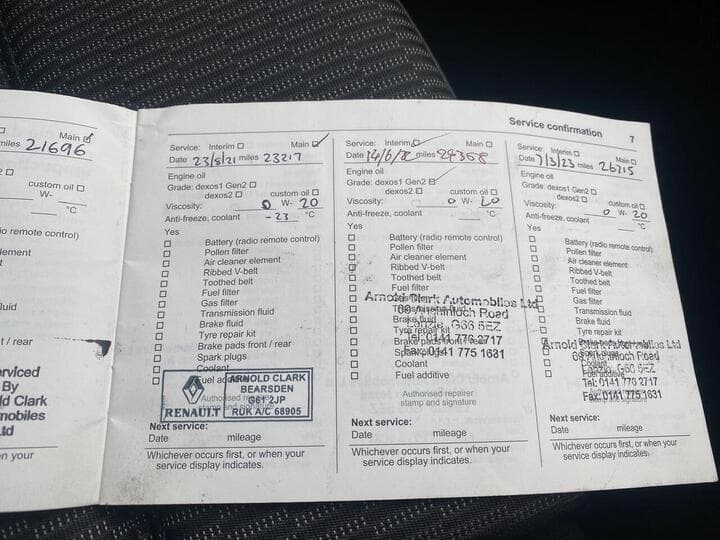 Service confirmation 7
Main ☑
miles 21696
custom oil ☐
W-
°C
io remote control)
lement
t
luid
t / rear
erviced
By
ld Clark
mobiles
Ltd
en your
Service: Interim ☐ Main ☑
Date 23/8/21 miles 23217
Engine oil
Grade: dexos1 Gen2 ☐ custom oil ☐
dexos2 ☐
Viscosity: 0 W- 20
Anti-freeze, coolant -23 °C
Yes
☐ Battery (radio remote control)
☐ Pollen filter
☐ Air cleaner element
☐ Ribbed V-belt
☐ Toothed belt
☐ Fuel filter
☐ Gas filter
☐ Transmission fluid
☐ Brake fluid
☐ Tyre repair kit
☐ Brake pads front / rear
☐ Spark plugs
☐ Coolant
☐ Fuel
ARNOLD CLARK
BEARSDEN
G61 2JP
RENAULT RUK A/C 68905
Next service:
Date mileage
Whichever occurs first, or when your
service display indicates.
Service: Interim ☑ Main ☐
Date 14/6/22 miles 24358
Engine oil
Grade: dexos1 Gen2 ☑
dexos2 ☐ custom oil ☐
Viscosity: 0 W- 20
Anti-freeze, coolant °C
Yes
☐ Battery (radio remote control)
☐ Pollen filter
☐ Air cleaner element
☐ Ribbed V-belt
☐ Toothed belt
☐ Fuel filter
☐ Transmission fluid
☐ Brake fluid
☐ Tyre repair kit
☐ Brake pads front / rear
☐ Coolant
☐ Fuel additive
Arnold Clark Automobiles Ltd
Auchinloch Road
Lenzie, G66 5EZ
Tel: 0141 776 2717
Fax: 0141 775 1631
Authorised repairer
stamp and signature
Next service:
Date mileage
Whichever occurs first, or when your
service display indicates.
Service: Interim ☐ Main ☐
Date 7/3/23 miles 26715
Engine oil
Grade: dexos1 Gen2 ☐
dexos2 ☐ custom oil ☐
Viscosity: 0 W- 20
Anti-freeze, coolant °C
Yes
☐ Battery (radio remote control)
☐ Pollen filter
☐ Air cleaner element
☐ Ribbed V-belt
☐ Toothed belt
☐ Fuel filter
☐ Gas filter
☐ Transmission fluid
☐ Brake fluid
☐ Tyre repair kit
Arnold Clark Automobiles Ltd
Auchinloch Road
Lenzie G66 5EZ
Tel: 0141 776 2717
Fax: 0141 775 1631
Next service:
Date mileage
Whichever occurs first, or when your
service display indicates.